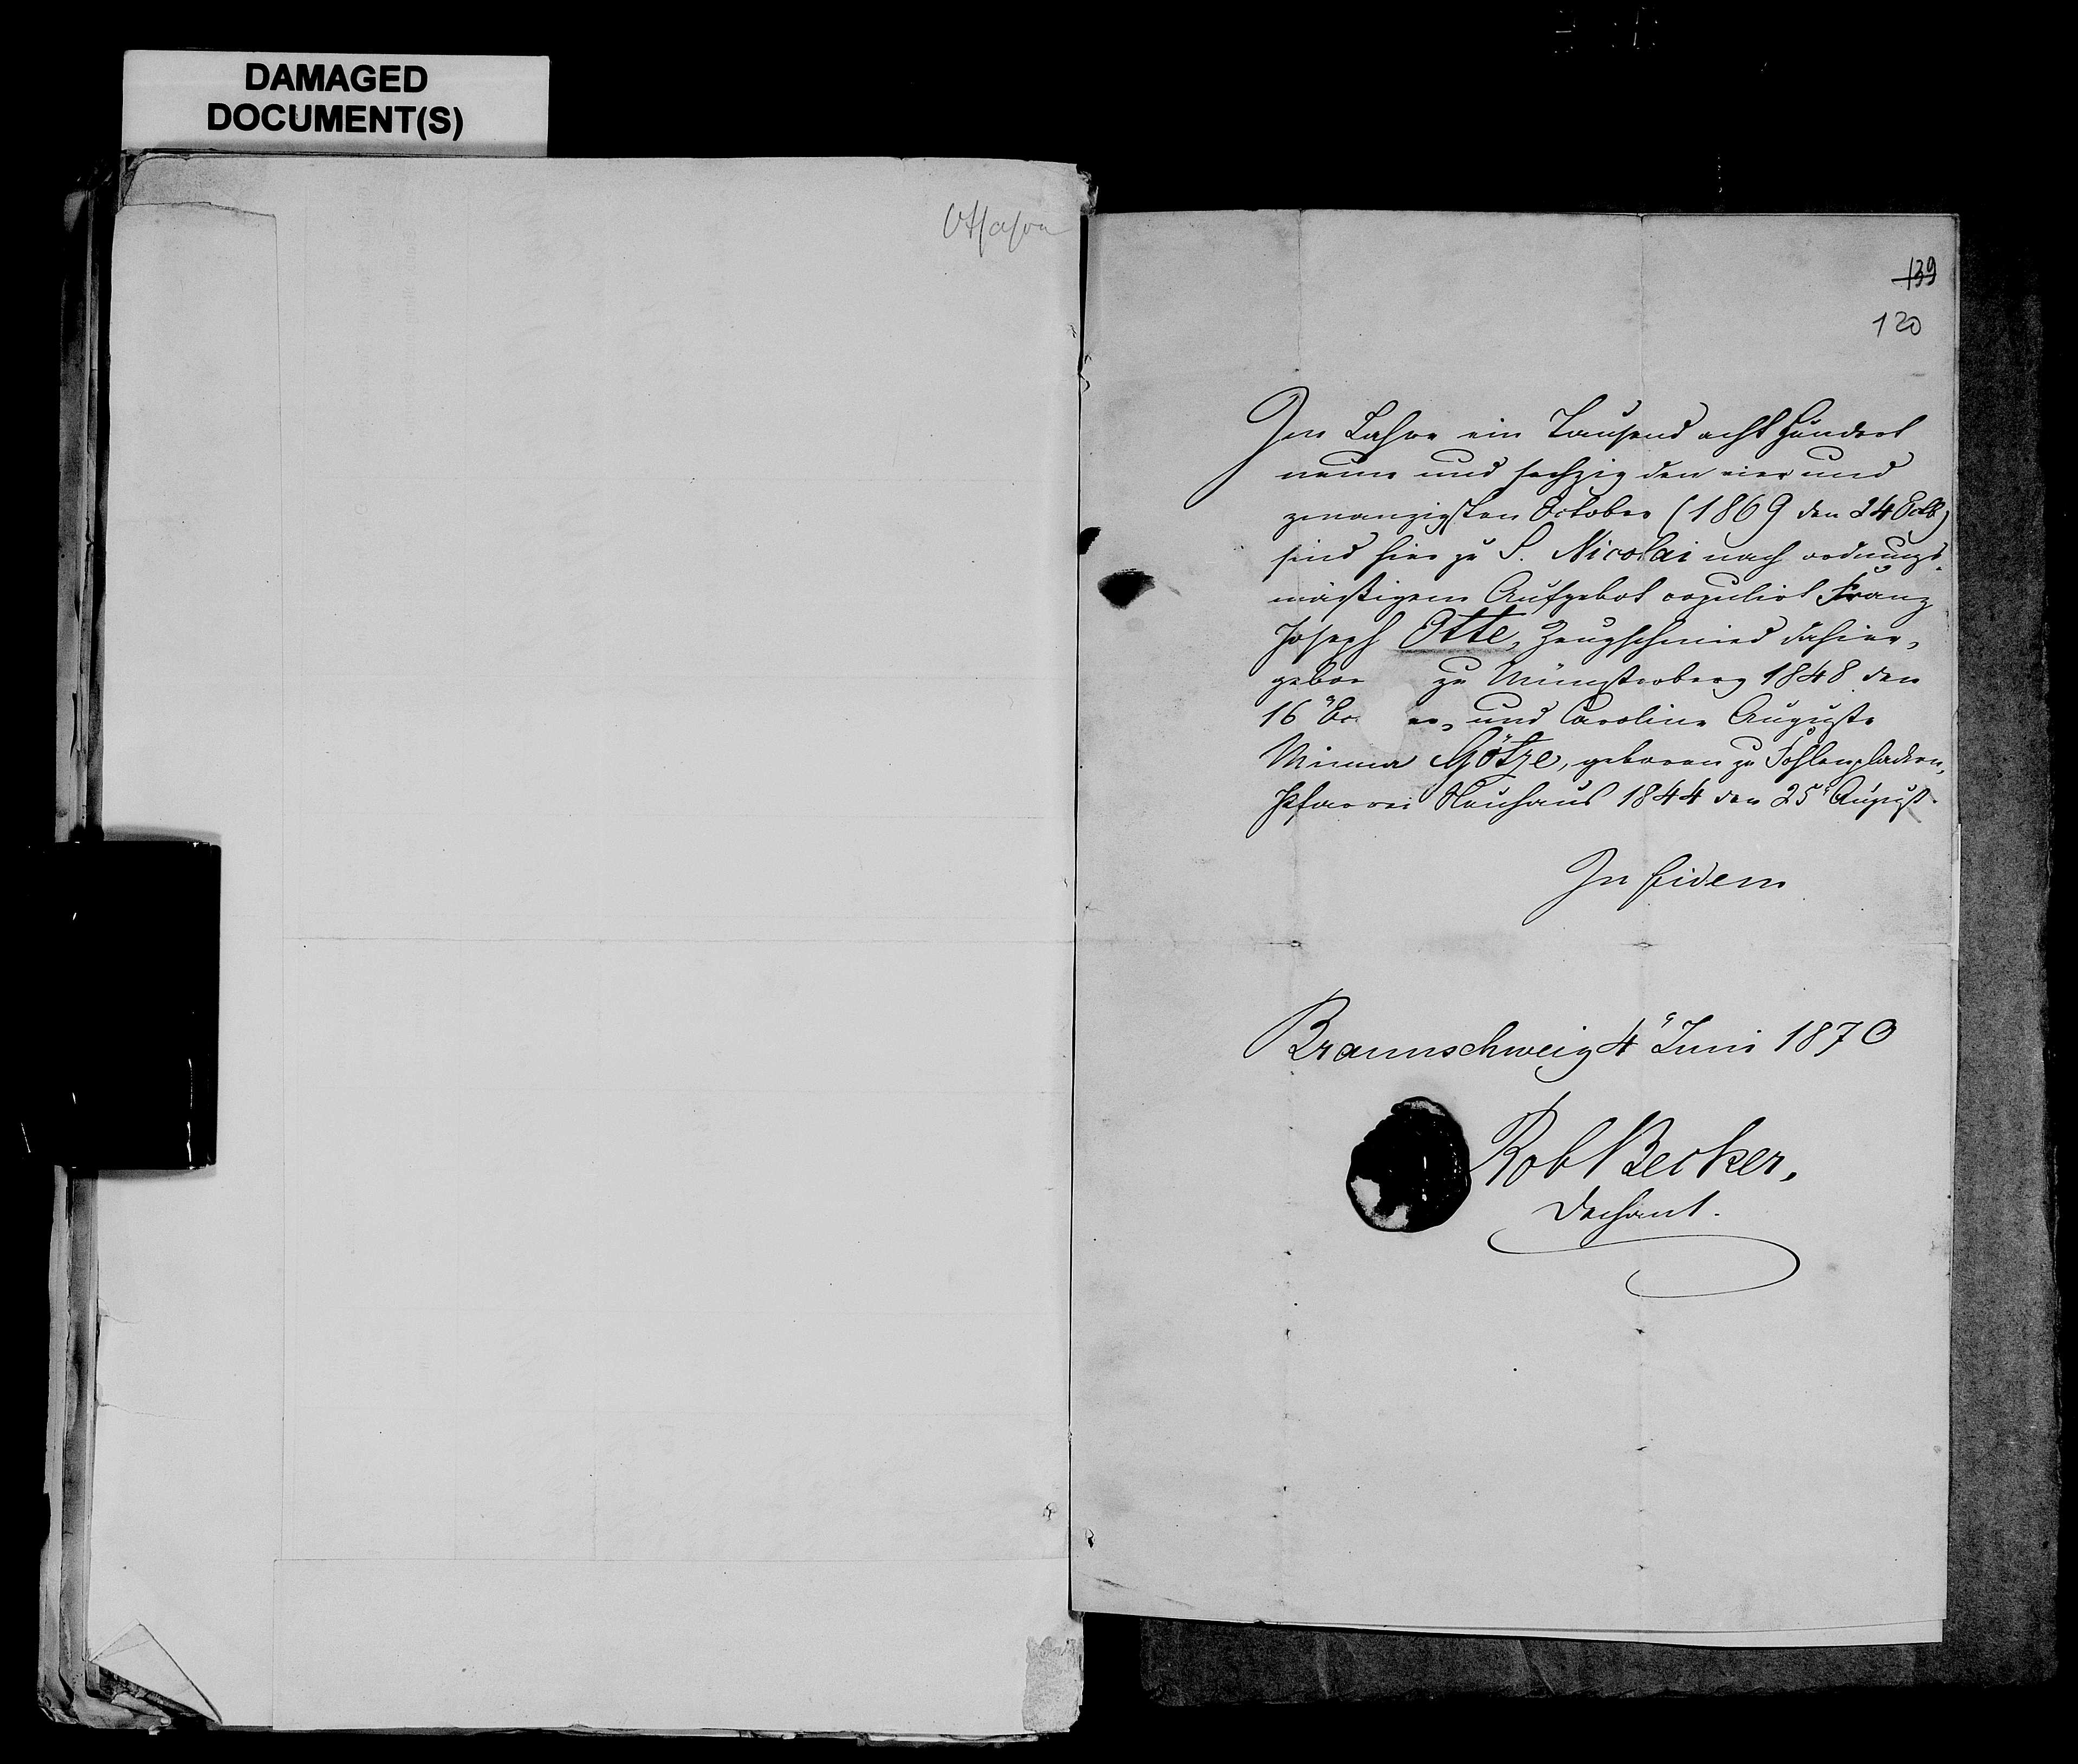 DAMAGED
DOCUMENT(S)
139
120
Im Jahre ein Tausend acht hundert
neun und sechzig den vier und
zwanzigsten October (1869 den 24 Octb)
sind hier zu S. Nicolai nach ordnungs-
mäßigem Aufgebot copulirt Franz
Joseph Otte, Zeugschmied dahier,
gebor zu Münsterberg 1848 den
16 er, und Caroline Auguste
Minna Götze, geboren zu Fohlenplacken,
Pfarrei Neuhaus 1844 den 25 August.
In fidem
Braunschweig 4 Juni 1870
Rob Becker,
Dechant.